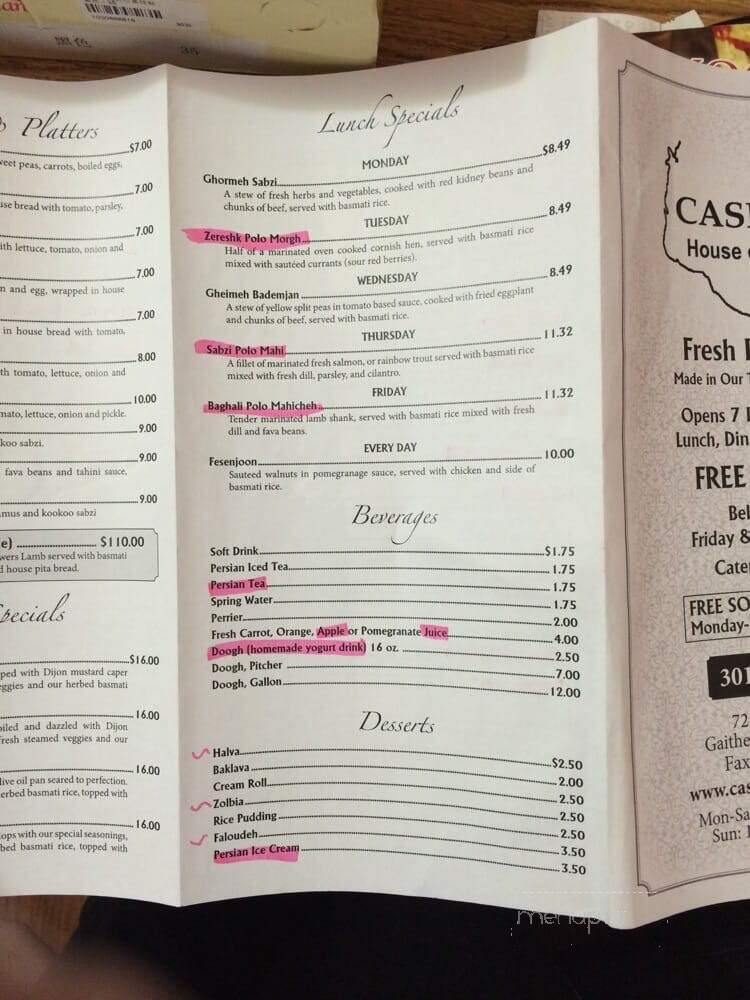 黑色
35
Platters
$7.00
weet peas, carrots, boiled eggs,
7.00
use bread with tomato, parsley,
7.00
ith lettuce, tomato, onion and
7.00
n and egg, wrapped in house
7.00
in house bread with tomato,
8.00
th tomato, lettuce, onion and
10.00
mato, lettuce, onion and pickle.
9.00
koo sabzi.
9.00
fava beans and tahini sauce,
9.00
mus and kookoo sabzi
e) $110.00
wers Lamb served with basmati
d house pita bread.
pecials
$16.00
ped with Dijon mustard caper
eggies and our herbed basmati
16.00
oiled and dazzled with Dijon
fresh steamed veggies and our
16.00
live oil pan seared to perfection.
erbed basmati rice, topped with
16.00
ops with our special seasonings,
bed basmati rice, topped with
Lunch Specials
MONDAY
Ghormeh Sabzi $8.49
A stew of fresh herbs and vegetables, cooked with red kidney beans and
chunks of beef, served with basmati rice.
TUESDAY
Zereshk Polo Morgh 8.49
Half of a marinated oven cooked cornish hen, served with basmati rice
mixed with sautéed currants (sour red berries).
WEDNESDAY
Gheimeh Bademjan 8.49
A stew of yellow split peas in tomato based sauce, cooked with fried eggplant
and chunks of beef, served with basmati rice.
THURSDAY
Sabzi Polo Mahi 11.32
A fillet of marinated fresh salmon, or rainbow trout served with basmati rice
mixed with fresh dill, parsley, and cilantro.
FRIDAY
Baghali Polo Mahicheh 11.32
Tender marinated lamb shank, served with basmati rice mixed with fresh
dill and fava beans.
EVERY DAY
Fesenjoon 10.00
Sauteed walnuts in pomegranage sauce, served with chicken and side of
basmati rice.
Beverages
Soft Drink $1.75
Persian Iced Tea 1.75
Persian Tea 1.75
Spring Water 1.75
Perrier 2.00
Fresh Carrot, Orange, Apple or Pomegranate Juice 4.00
Doogh (homemade yogurt drink) 16 oz. 2.50
Doogh, Pitcher 7.00
Doogh, Gallon 12.00
Desserts
Halva $2.50
Baklava 2.00
Cream Roll 2.50
Zolbia 2.50
Rice Pudding 2.50
Faloudeh 3.50
Persian Ice Cream 3.50
N
CASP
House o
Fresh
Made in Our T
Opens 7
Lunch, Din
FREE
Bel
Friday &
Cater
FREE SO
Monday-
301
72
Gaithe
Fax
www.cas
Mon-Sa
Sun:
menup